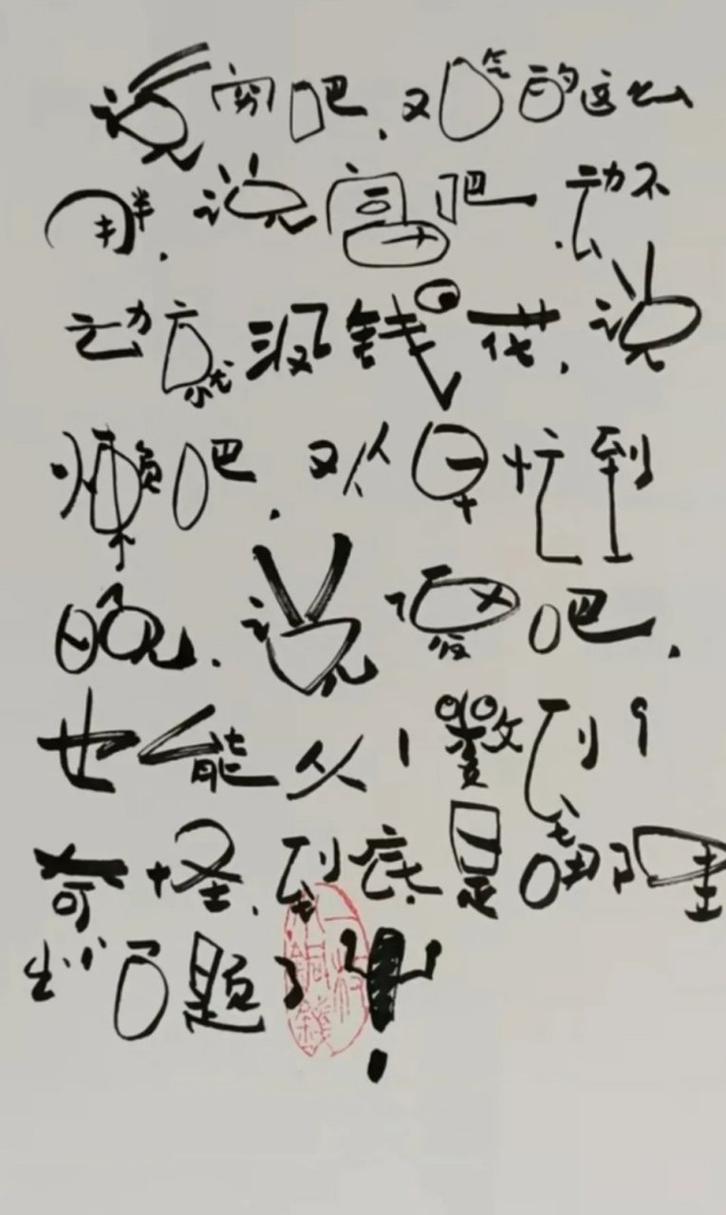 说穷吧,又吃的这么
胖,说富吧 动不
动就没钱花,说
懒吧,又从早忙到
晚,说傻吧,
也能从1数到9
奇怪,到底是哪里
出问题了!